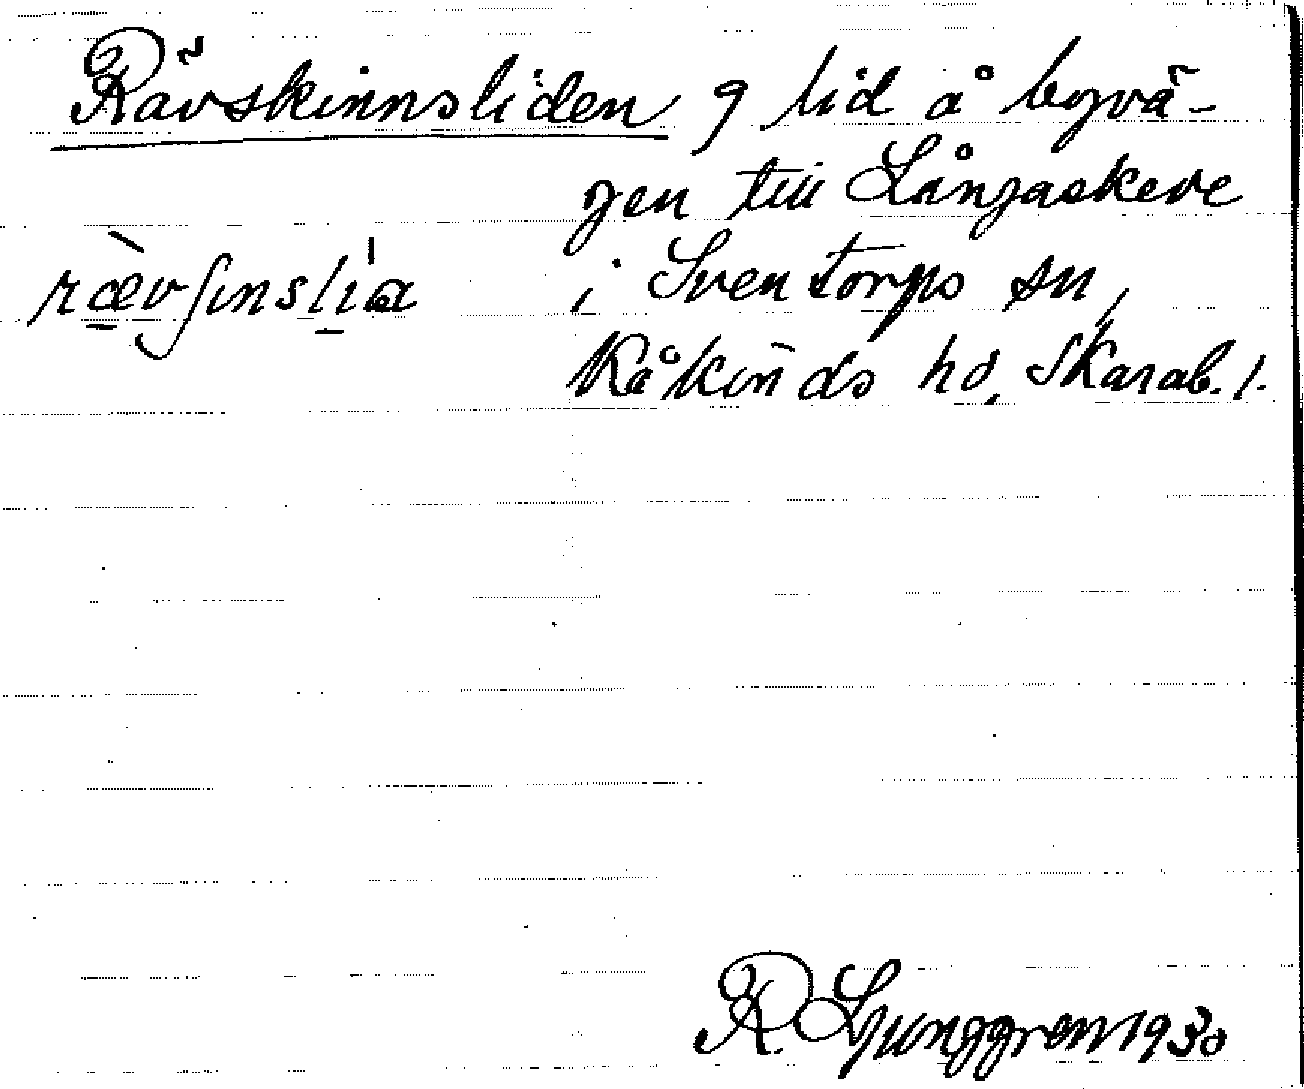 Rävskinnsliden g lid å byvä-
gen till Långaskeve
i Sventorps sn,
Kåkinds hd, Skarab. l.
rævʃinslia
R. Ljunggren 1930